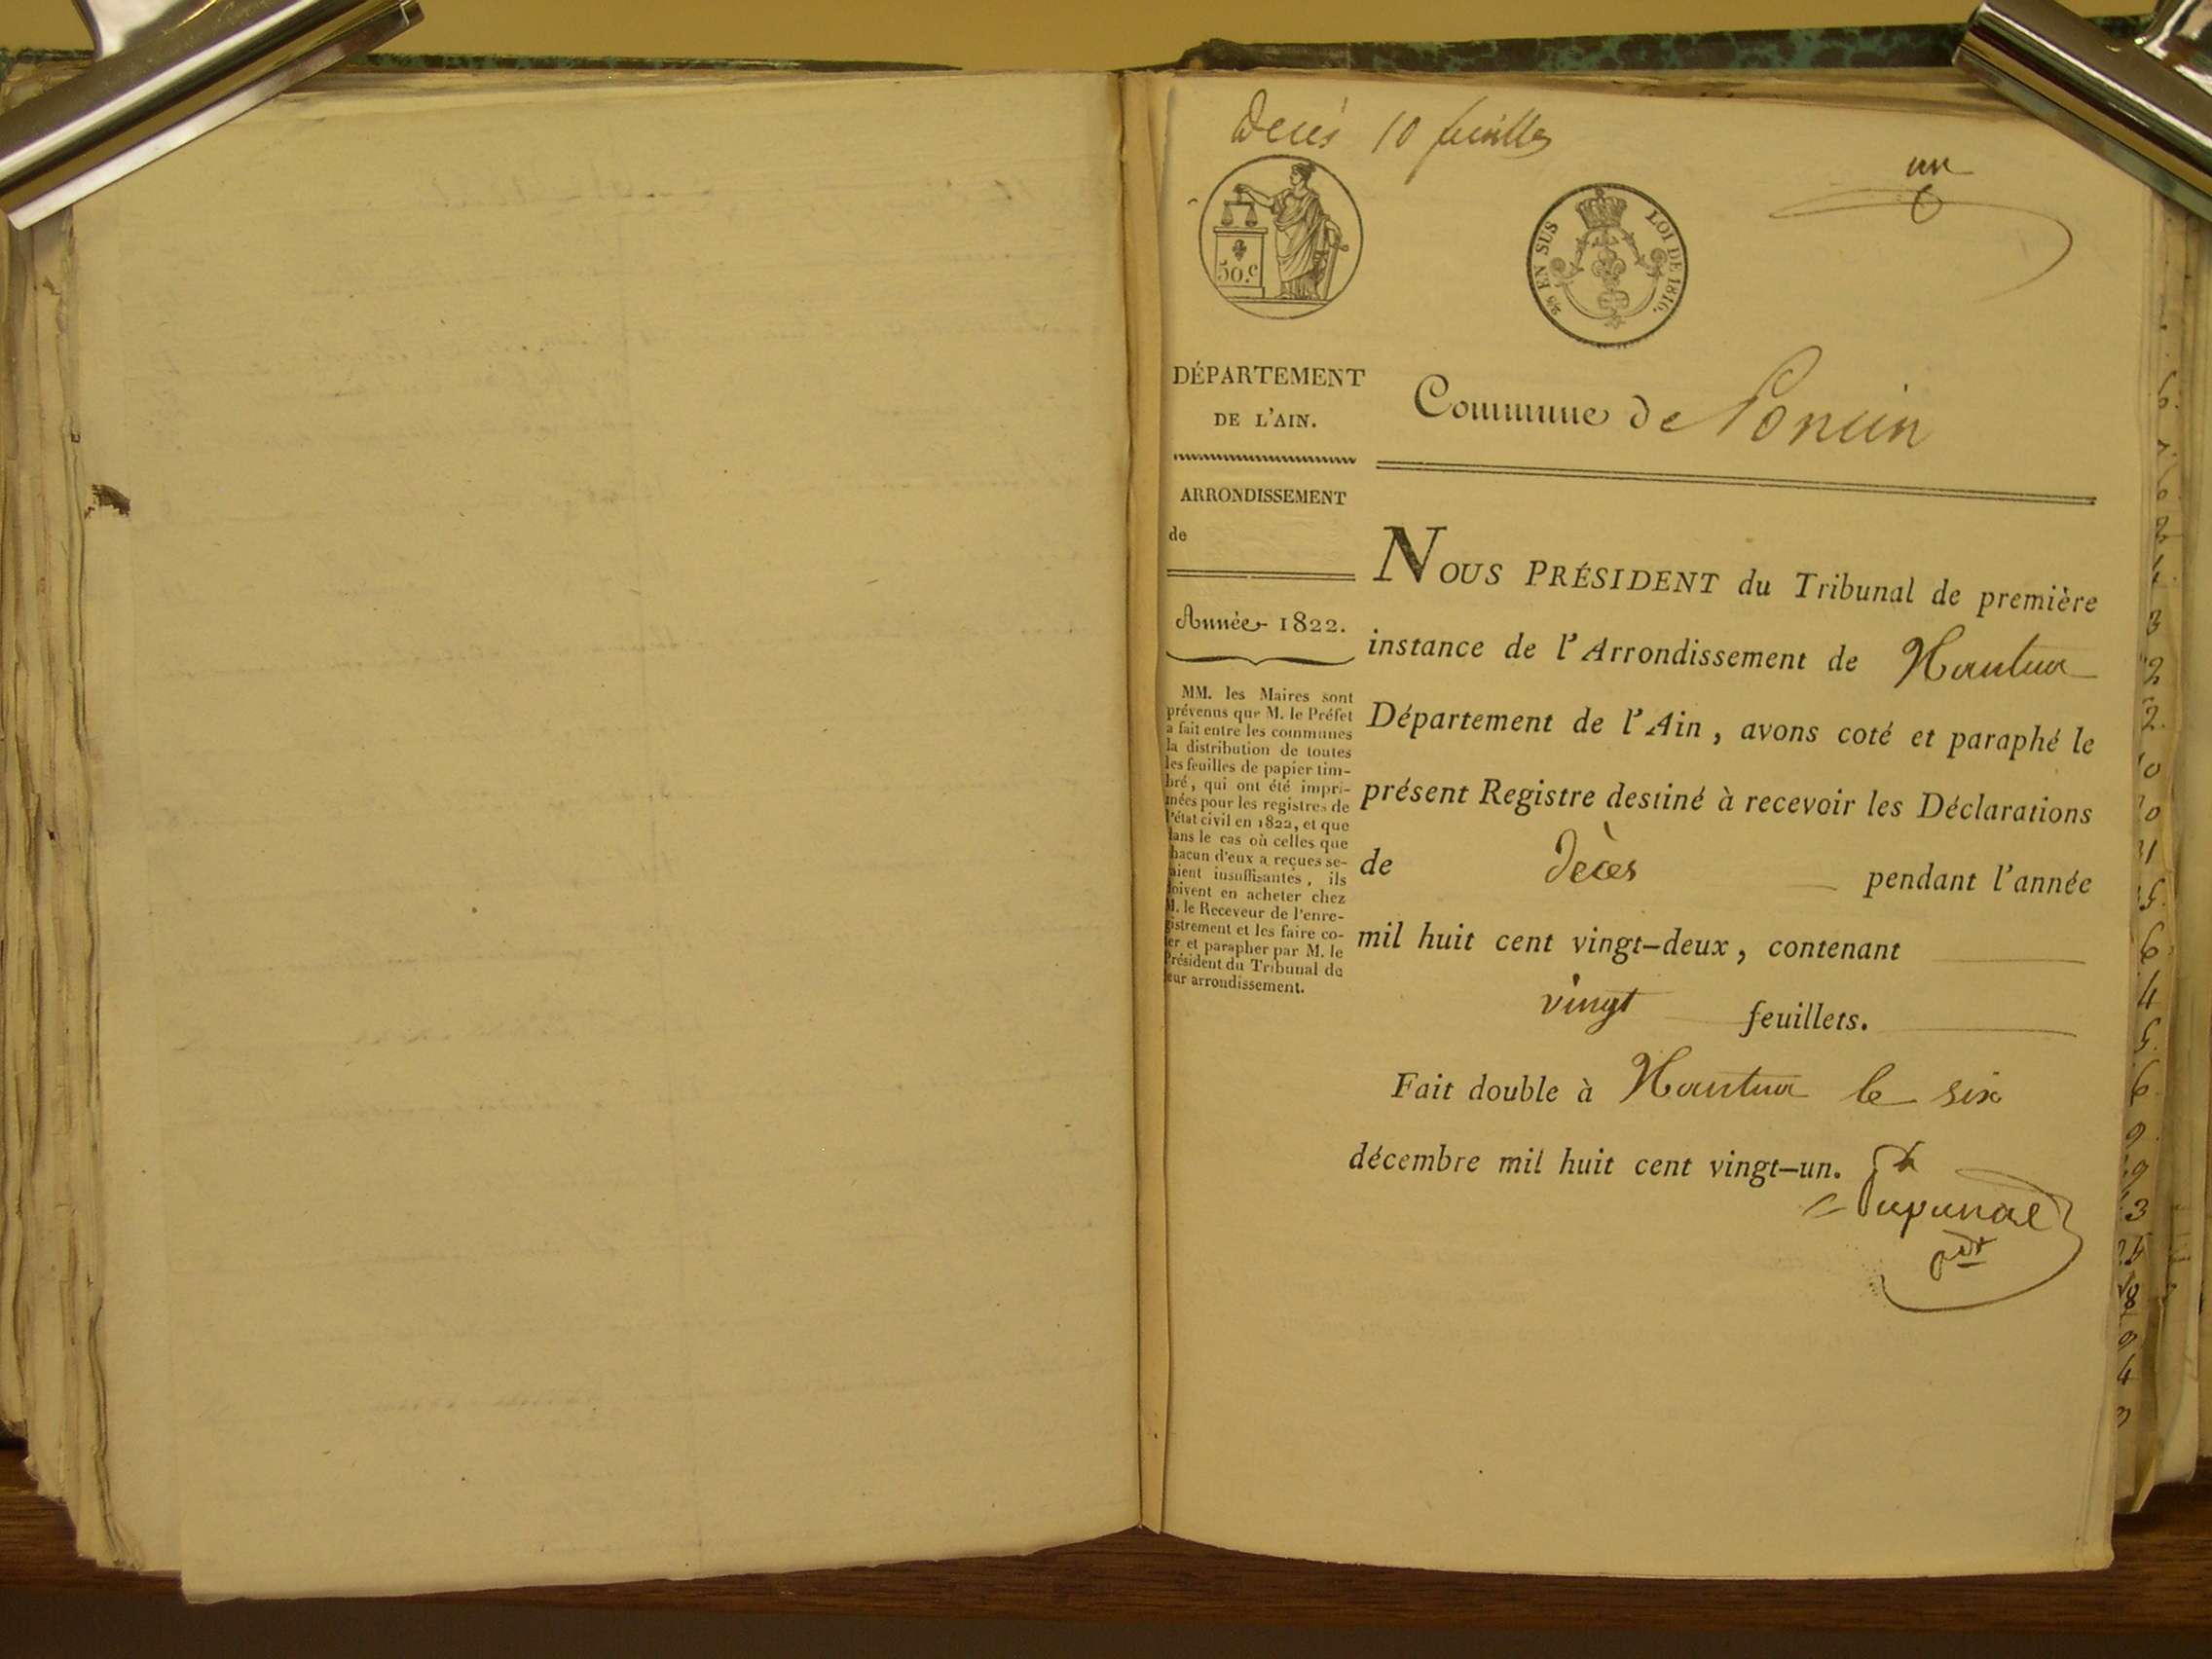 Décès 10 feuilles
un
50.c
EN SUS LOI DE 1816.
DÉPARTEMENT
DE L'AIN.
Commune de Poncin
ARRONDISSEMENT
de
Année 1822.
MM. les Maires sont
prévenus que M. le Préfet
a fait entre les communes
la distribution de toutes
les feuilles de papier tim-
bré, qui ont été impri-
mées pour les registres de
l'état civil en 1822, et que
dans le cas où celles que
hacun d'eux a reçues se-
aient insuffisantes, ils
oivent en acheter chez
M. le Receveur de l'enre-
gistrement et les faire co-
ter et parapher par M. le
Président du Tribunal de
eur arrondissement.
NOUS PRÉSIDENT du Tribunal de première
instance de l'Arrondissement de Nantua
Département de l'Ain, avons coté et paraphé le
présent Registre destiné à recevoir les Déclarations
de Décès pendant l'année
mil huit cent vingt-deux, contenant
vingt feuillets.
Fait double à Nantua le six
décembre mil huit cent vingt-un.